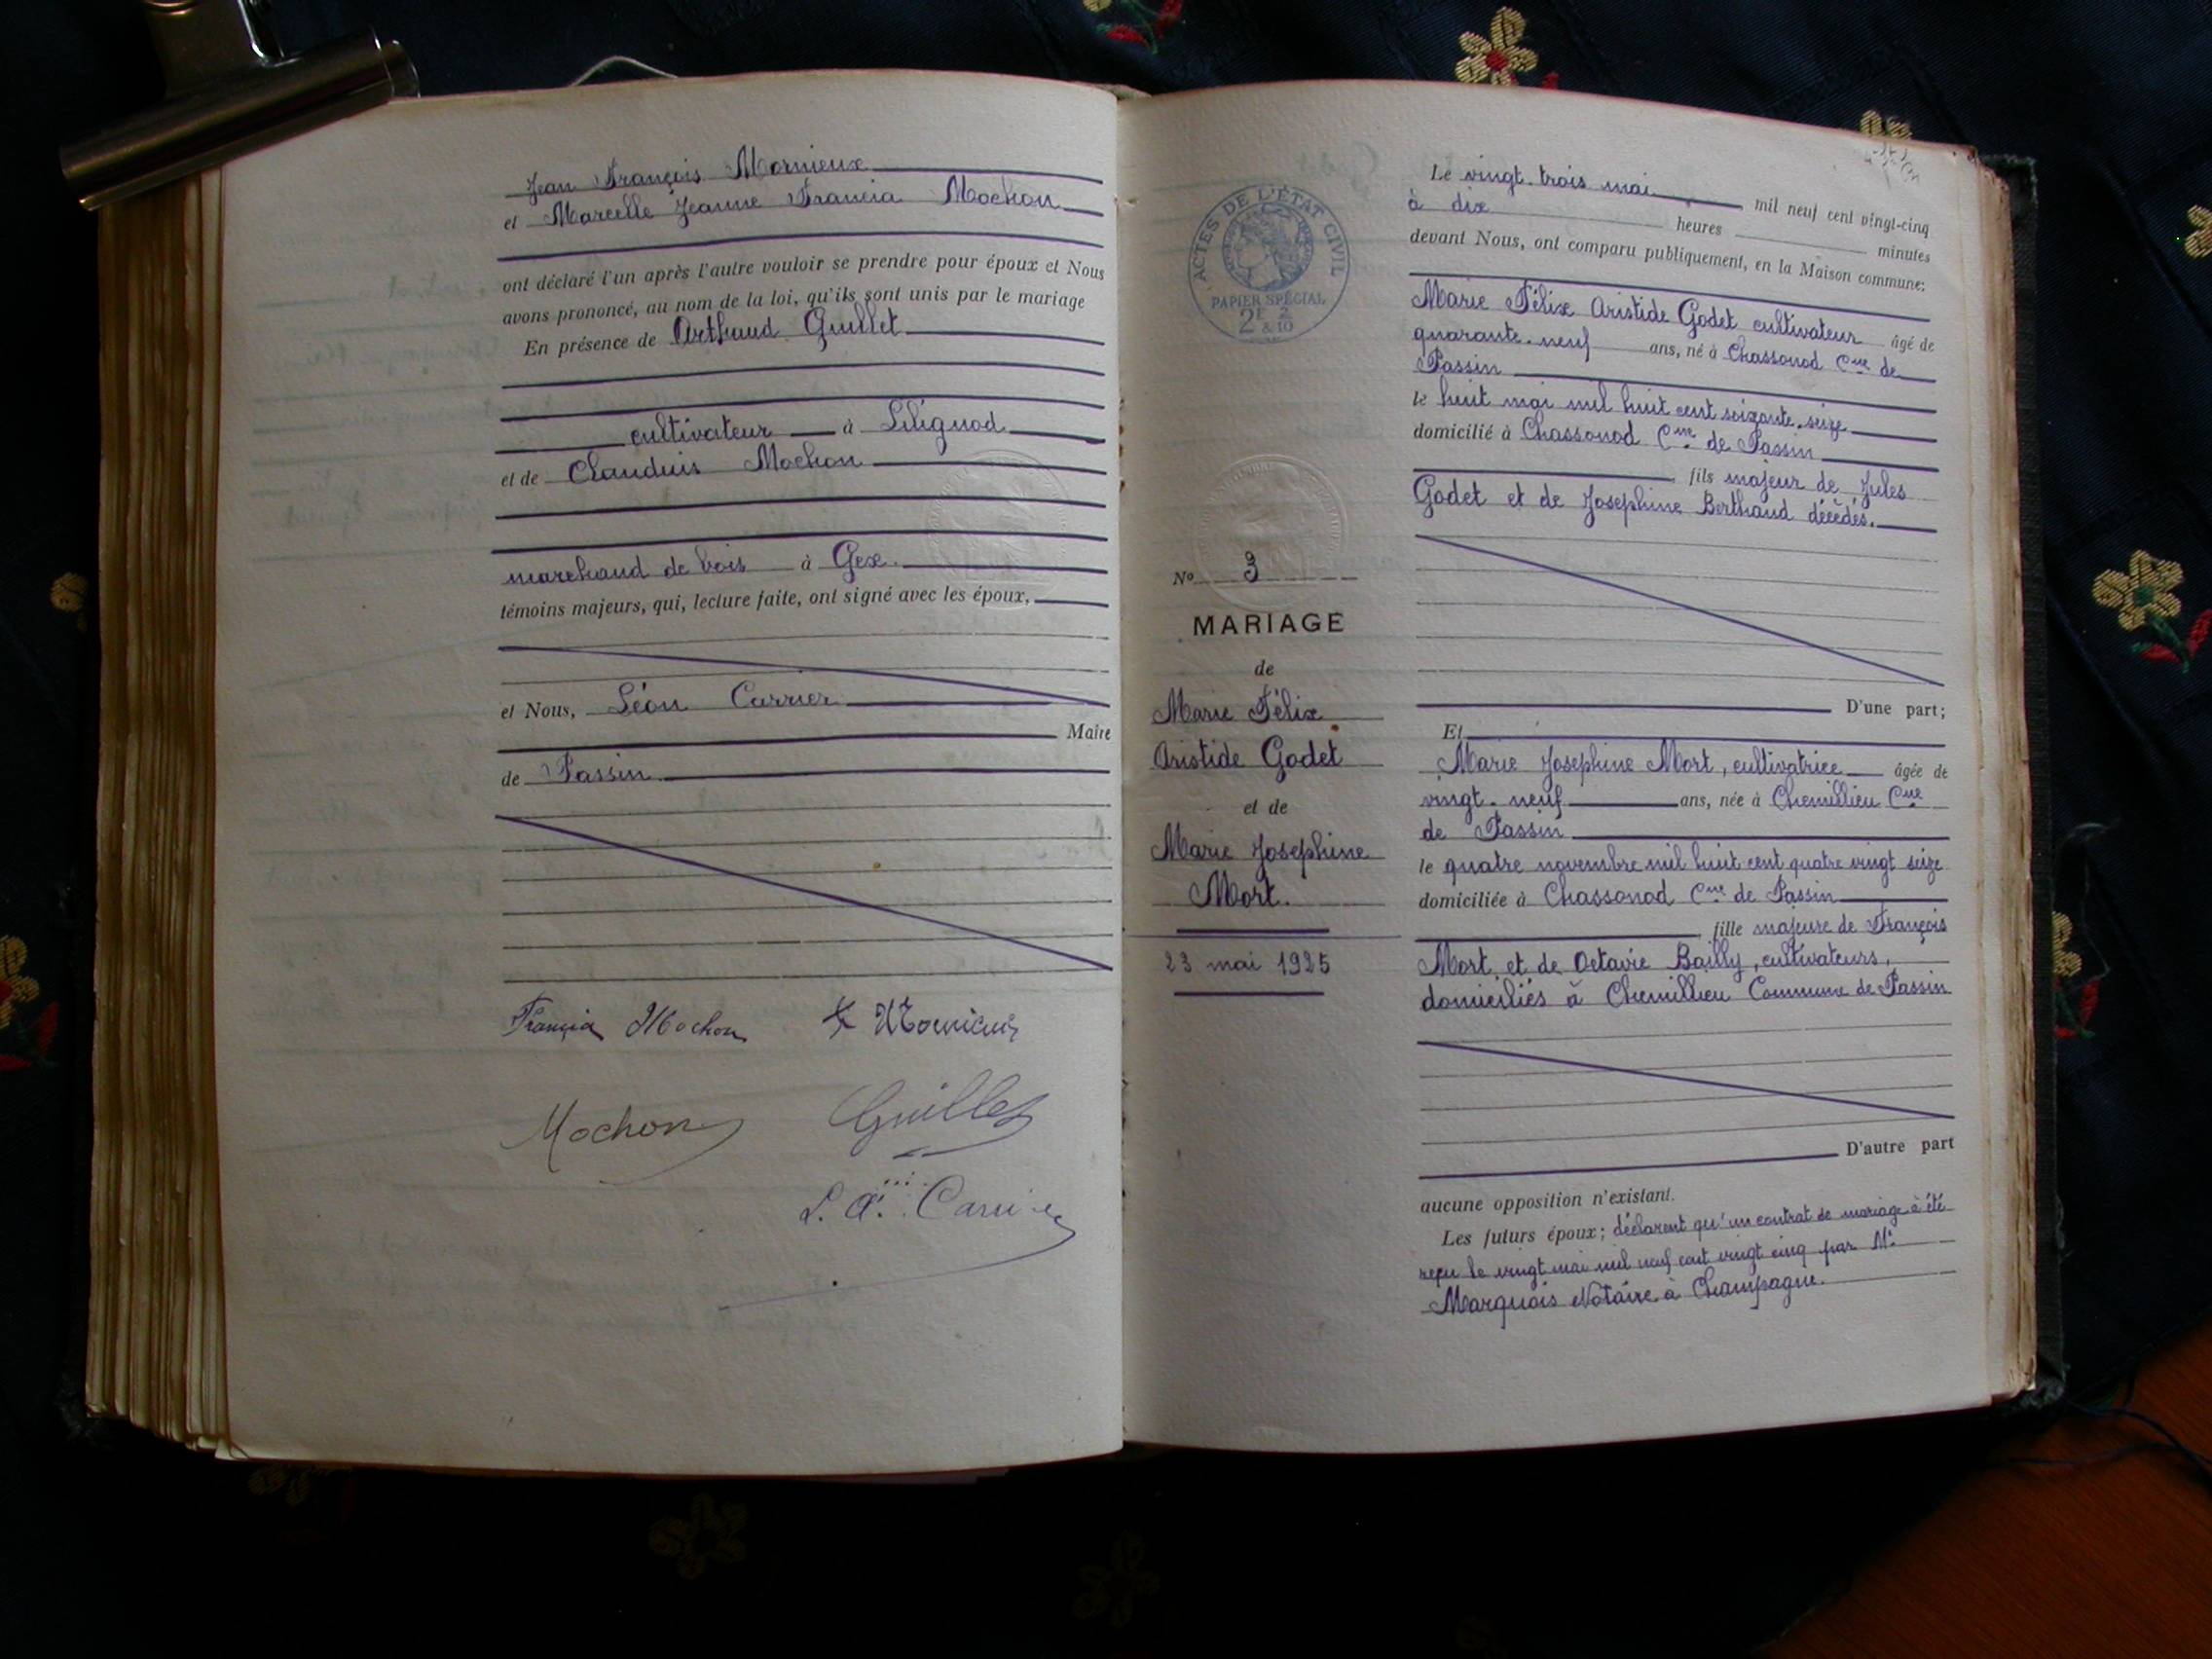 Jean François Mornieux
et Marcelle Jeanne Francia Mochon
ont déclaré l'un après l'autre vouloir se prendre pour époux et Nous
avons prononcé, au nom de la loi, qu'ils sont unis par le mariage
En présence de Arthaud Guillet
cultivateur à Lilignod
et de Claudius Mochon
marchand de bois à Gex.
témoins majeurs, qui, lecture faite, ont signé avec les époux,
et Nous, Léon Carrier
Maire
de Passin
Francia Mochon
Mochon Guillet
L. A. Carrier
ACTES DE L'ÉTAT CIVIL
PAPIER SPÉCIAL
2F 2
& 10
No 3
MARIAGE
de
Marie Félix
Aristide Godet
et de
Marie Josephine
Mort.
23 mai 1925
Le vingt-trois mai mil neuf cent vingt-cinq
à dix heures minutes
devant Nous, ont comparu publiquement, en la Maison commune:
Marie Félix Aristide Godet cultivateur âgé de
quarante-neuf ans, né à Chassonod Cne de
Passin
le huit mai mil huit cent soixante-seize
domicilié à Chassonod Cne de Passin
fils majeur de Jules
Godet et de Josephine Berthaud décédés.
D'une part;
Et
Marie Josephine Mort, cultivatrice âgée de
vingt-neuf ans, née à Chemillieu Cne
de Passin
le quatre novembre mil huit cent quatre vingt seize
domiciliée à Chassonod Cne de Passin
fille majeure de François
Mort et de Octavie Bailly, cultivateurs,
domiciliés à Chemillieu Commune de Passin
D'autre part
aucune opposition n'existant.
Les futurs époux; déclarent qu'un contrat de mariage à été
reçu le vingt mai mil neuf cent vingt cinq par Me
Marquois Notaire à Champagne.